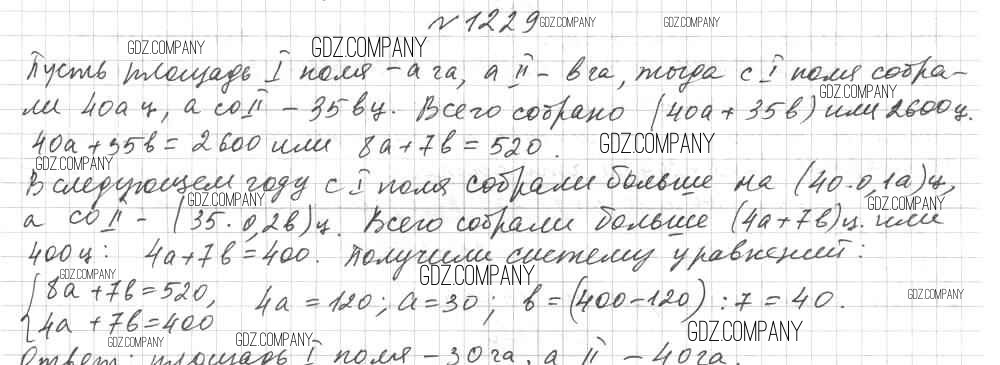 № 1229 GDZ.COMPANY GDZ.COMPANY
GDZ.COMPANY GDZ.COMPANY
Пусть площадь I поля - a га, а II - b га, тогда с I поля собра-
GDZ.COMPANY
ли 40a ц, а со II - 35b ц. Всего собрано (40a + 35b) или 2600 ц.
40a + 35b = 2600 или 8a + 7b = 520. GDZ.COMPANY
GDZ.COMPANY
В следующем году с I поля собрали больше на (40·0,1a) ц,
GDZ.COMPANY GDZ.COMPANY
а со II - (35·0,2b) ц. Всего собрали больше (4a+7b) ц. или
400 ц: 4a+7b = 400. Получили систему уравнений:
GDZ.COMPANY GDZ.COMPANY
{8a + 7b = 520, 4a = 120; a = 30; b = (400-120) : 7 = 40. GDZ.COMPANY
4a + 7b = 400 GDZ.COMPANY
GDZ.COMPANY GDZ.COMPANY
Ответ: площадь I поля - 30 га, а II - 40 га.